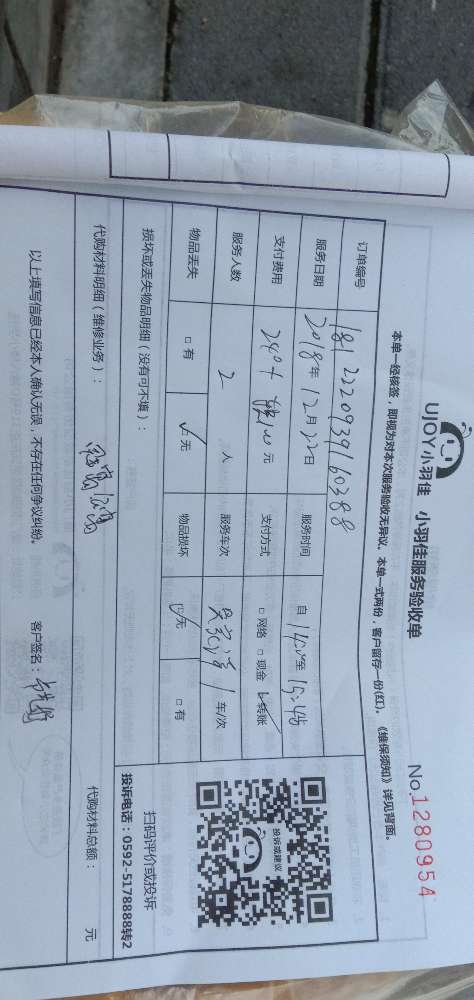 UJOY小羽佳 小羽佳服务验收单
No.1280954
本单一经核签，即视为对本次服务验收无异议。本单一式两份，客户留存一份(红)。《维保须知》详见背面。
订单编号 18122220939160388
服务日期 2018年12月22日 服务时间 自 至 15:45
支付费用 元 支付方式 □网络 □现金 转账
服务人数 2 人 服务车次 1 车/次
物品丢失 □有 ☑无 物品损坏 ☑无 □有
投诉或建议
扫码评价或投诉
投诉电话：0592-5178888转2
损坏或丢失物品明细（没有可不填）：
代购材料明细（维修业务）： 代购材料总额： 元
以上填写信息已经本人确认无误，不存在任何争议纠纷。 客户签名：